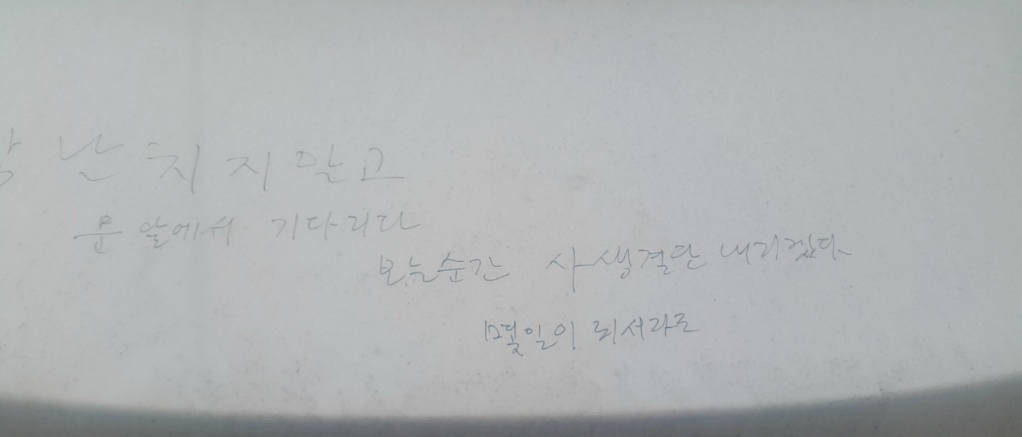 장난치지 말고
문 앞에서 기다리다
보는순간 사생결단 내리겠다
몇일이 되서라도